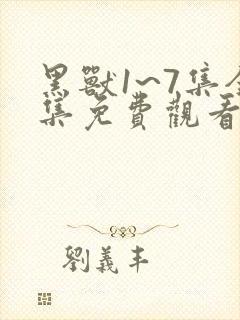 黑獸1~7集全
集免費觀看
劉義丰